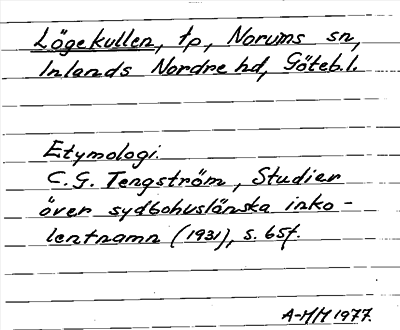 Lögekullen, tp, Norums sn,
Inlands Nordre hd, Göteb.l.
Etymologi.
C.G. Tengström, Studier
över sydbohuslänska inko-
lentnamn (1931), s. 65f.
A-MH 1977.